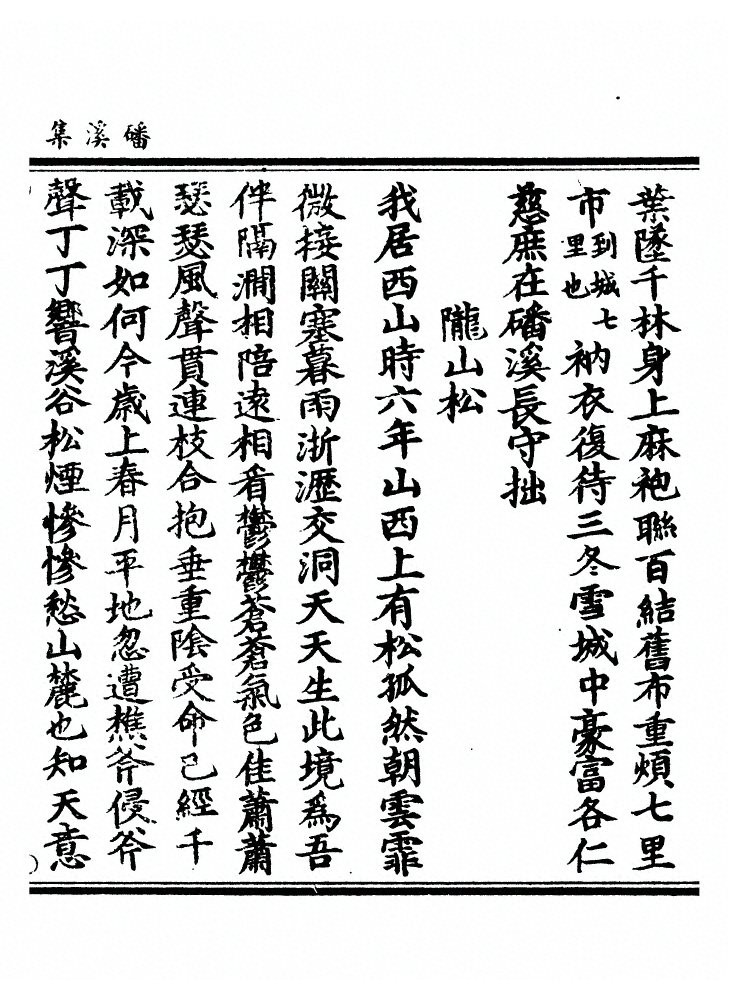 磻溪集
葉墜千林身上麻袍聯百結舊布重煩七里
市到城七里也衲衣復待三冬雪城中豪富各仁
慈庶在磻溪長守拙
隴山松
我居西山時六年山西上有松孤然朝雲霏
微接關塞暮雨淅瀝交洞天天生此境為吾
伴隔澗相陪遠相看鬱鬱蒼蒼氣色佳蕭蕭
瑟瑟風聲貫連枝合抱垂重陰受命已經千
載深如何今歲上春月平地忽遭樵斧侵斧
聲丁丁響溪谷松煙慘慘愁山麓也知天意